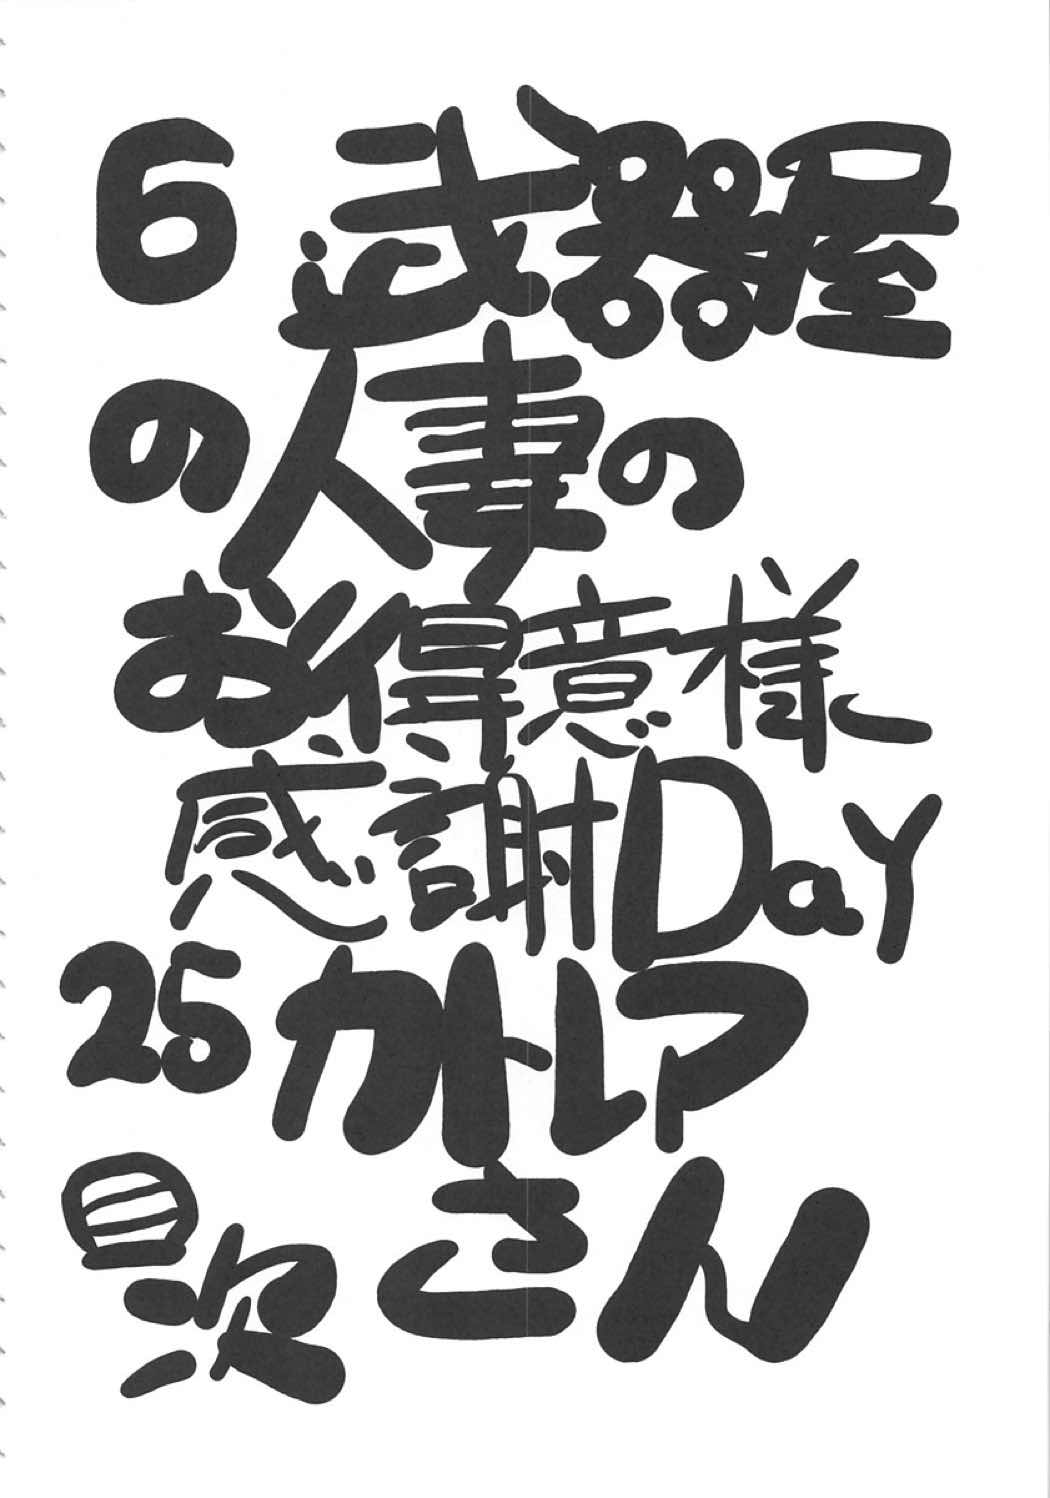 6 武器屋
の人妻の
お得意様
感謝DaY
25カトレア
さん
目次